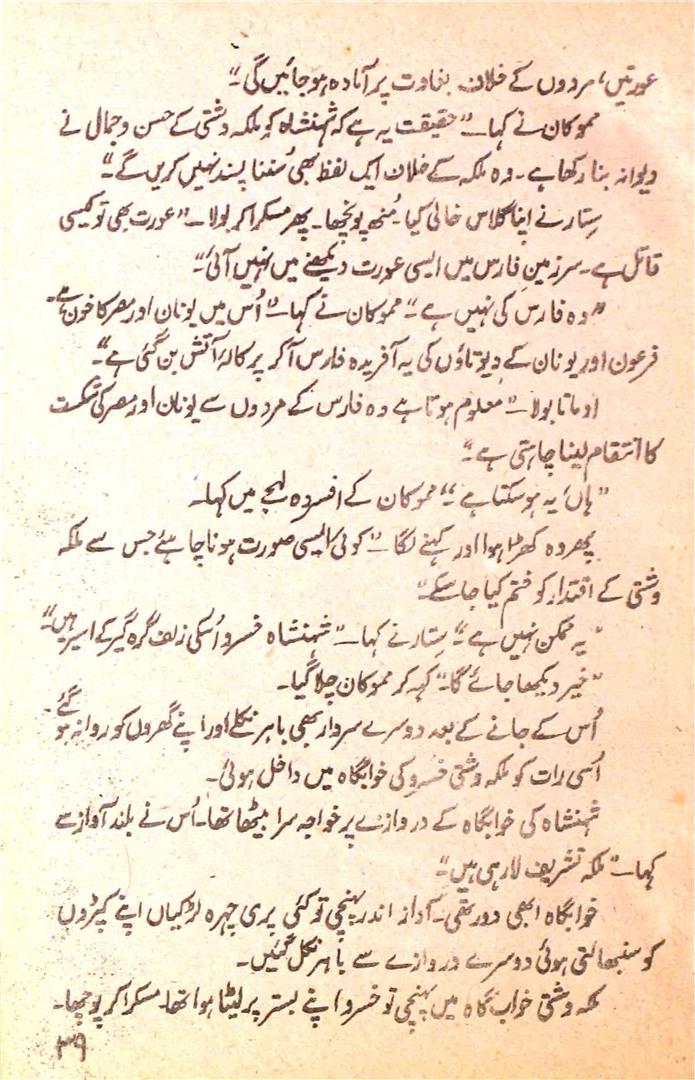 عورتیں، مردوں کے خلاف بغاوت پر آمادہ ہو جائیں گی۔"
مموکان نے کہا۔ "حقیقت یہ ہے کہ شہنشاہ کو ملکہ وشتی کے حسن و جمال نے
دیوانہ بنا رکھا ہے۔ وہ ملکہ کے خلاف ایک لفظ بھی سُننا پسند نہیں کریں گے۔"
ستار نے اپنا گلاس خالی کیا۔ مُنھ پونچھا۔ پھر مسکرا کر بولا۔ "عورت بھی تو کیسی
قاتل ہے۔ سرزمینِ فارس میں ایسی عورت دیکھنے میں نہیں آئی۔"
"وہ فارس کی نہیں ہے۔" مموکان نے کہا۔ "اُس میں یونان اور مصر کا خون ہے۔
فرعون اور یونان کے دیوتاؤں کی یہ آفریدہ فارس آ کر پرکالۂ آتش بن گئی ہے۔"
اوماتا بولا۔ "معلوم ہوتا ہے وہ فارس کے مردوں سے یونان اور مصر کی شکست
کا انتقام لینا چاہتی ہے۔"
"ہاں، یہ ہو سکتا ہے،" مموکان کے افسردہ لہجے میں کہا۔
پھر وہ کھڑا ہوا اور کہنے لگا۔ "کوئی ایسی صورت ہونا چاہئے جس سے ملکہ
وشتی کے اقتدار کو ختم کیا جا سکے۔"
"یہ ممکن نہیں ہے۔" ستار نے کہا۔ "شہنشاہ خسرو اُسکی زلف گرہ گیر کے اسیر ہیں۔"
"خیر دیکھا جائے گا۔" کہہ کر مموکان چلا گیا۔
اُس کے جانے کے بعد دوسرے سردار بھی باہر نکلے اور اپنے گھروں کو روانہ ہو گئے۔
اُسی رات کو ملکہ وشتی خسرو کی خوابگاہ میں داخل ہوئی۔
شہنشاہ کی خوابگاہ کے دروازے پر خواجہ سرا بیٹھا تھا۔ اُس نے بلند آواز سے
کہا۔ "ملکہ تشریف لا رہی ہیں۔"
خوابگاہ ابھی دور تھی۔ آواز اندر پہنچی تو کئی پری چہرہ لڑکیاں اپنے کپڑوں
کو سنبھالتی ہوئی دوسرے دروازے سے باہر نکل گئیں۔
ملکہ وشتی خواب گاہ میں پہنچی تو خسرو اپنے بستر پر لیٹا ہوا تھا۔ مسکرا کر پوچھا۔
۳۹